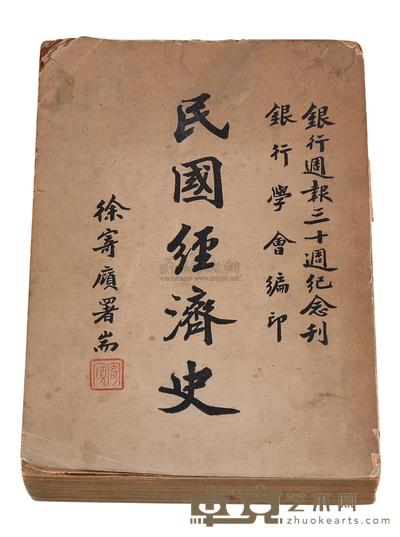 銀行週報三十週紀念刊
銀行學會編印
民國經濟史
徐寄廎署耑
寄廎
卓克艺术网
zhuokearts.com